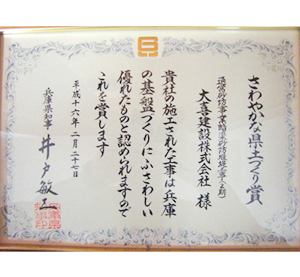 さわやかな県土づくり賞
大喜建設株式会社 様
貴社の施工された工事は兵庫
の基盤づくりにふさわしい
優れたものと認められますので
これを賞します
平成十六年二月二十七日
兵庫県知事 井戸敏三